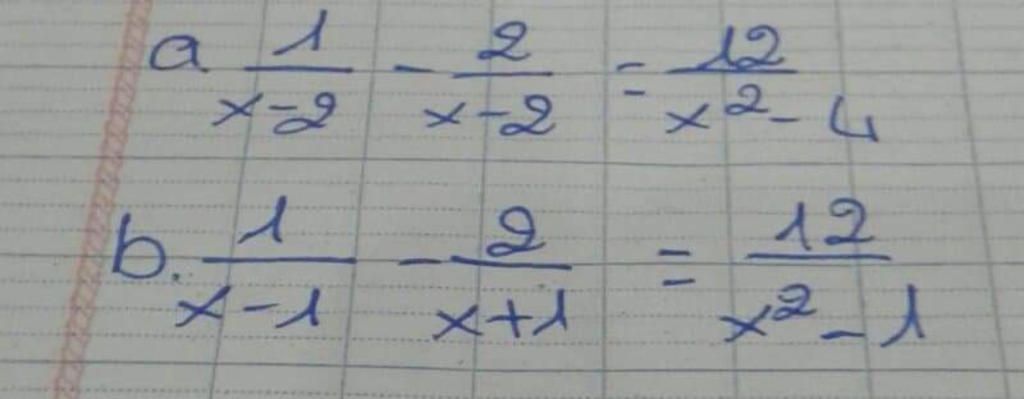 a. 1/(x-2) - 2/(x-2) = 12/(x²-4)
b. 1/(x-1) - 2/(x+1) = 12/(x²-1)